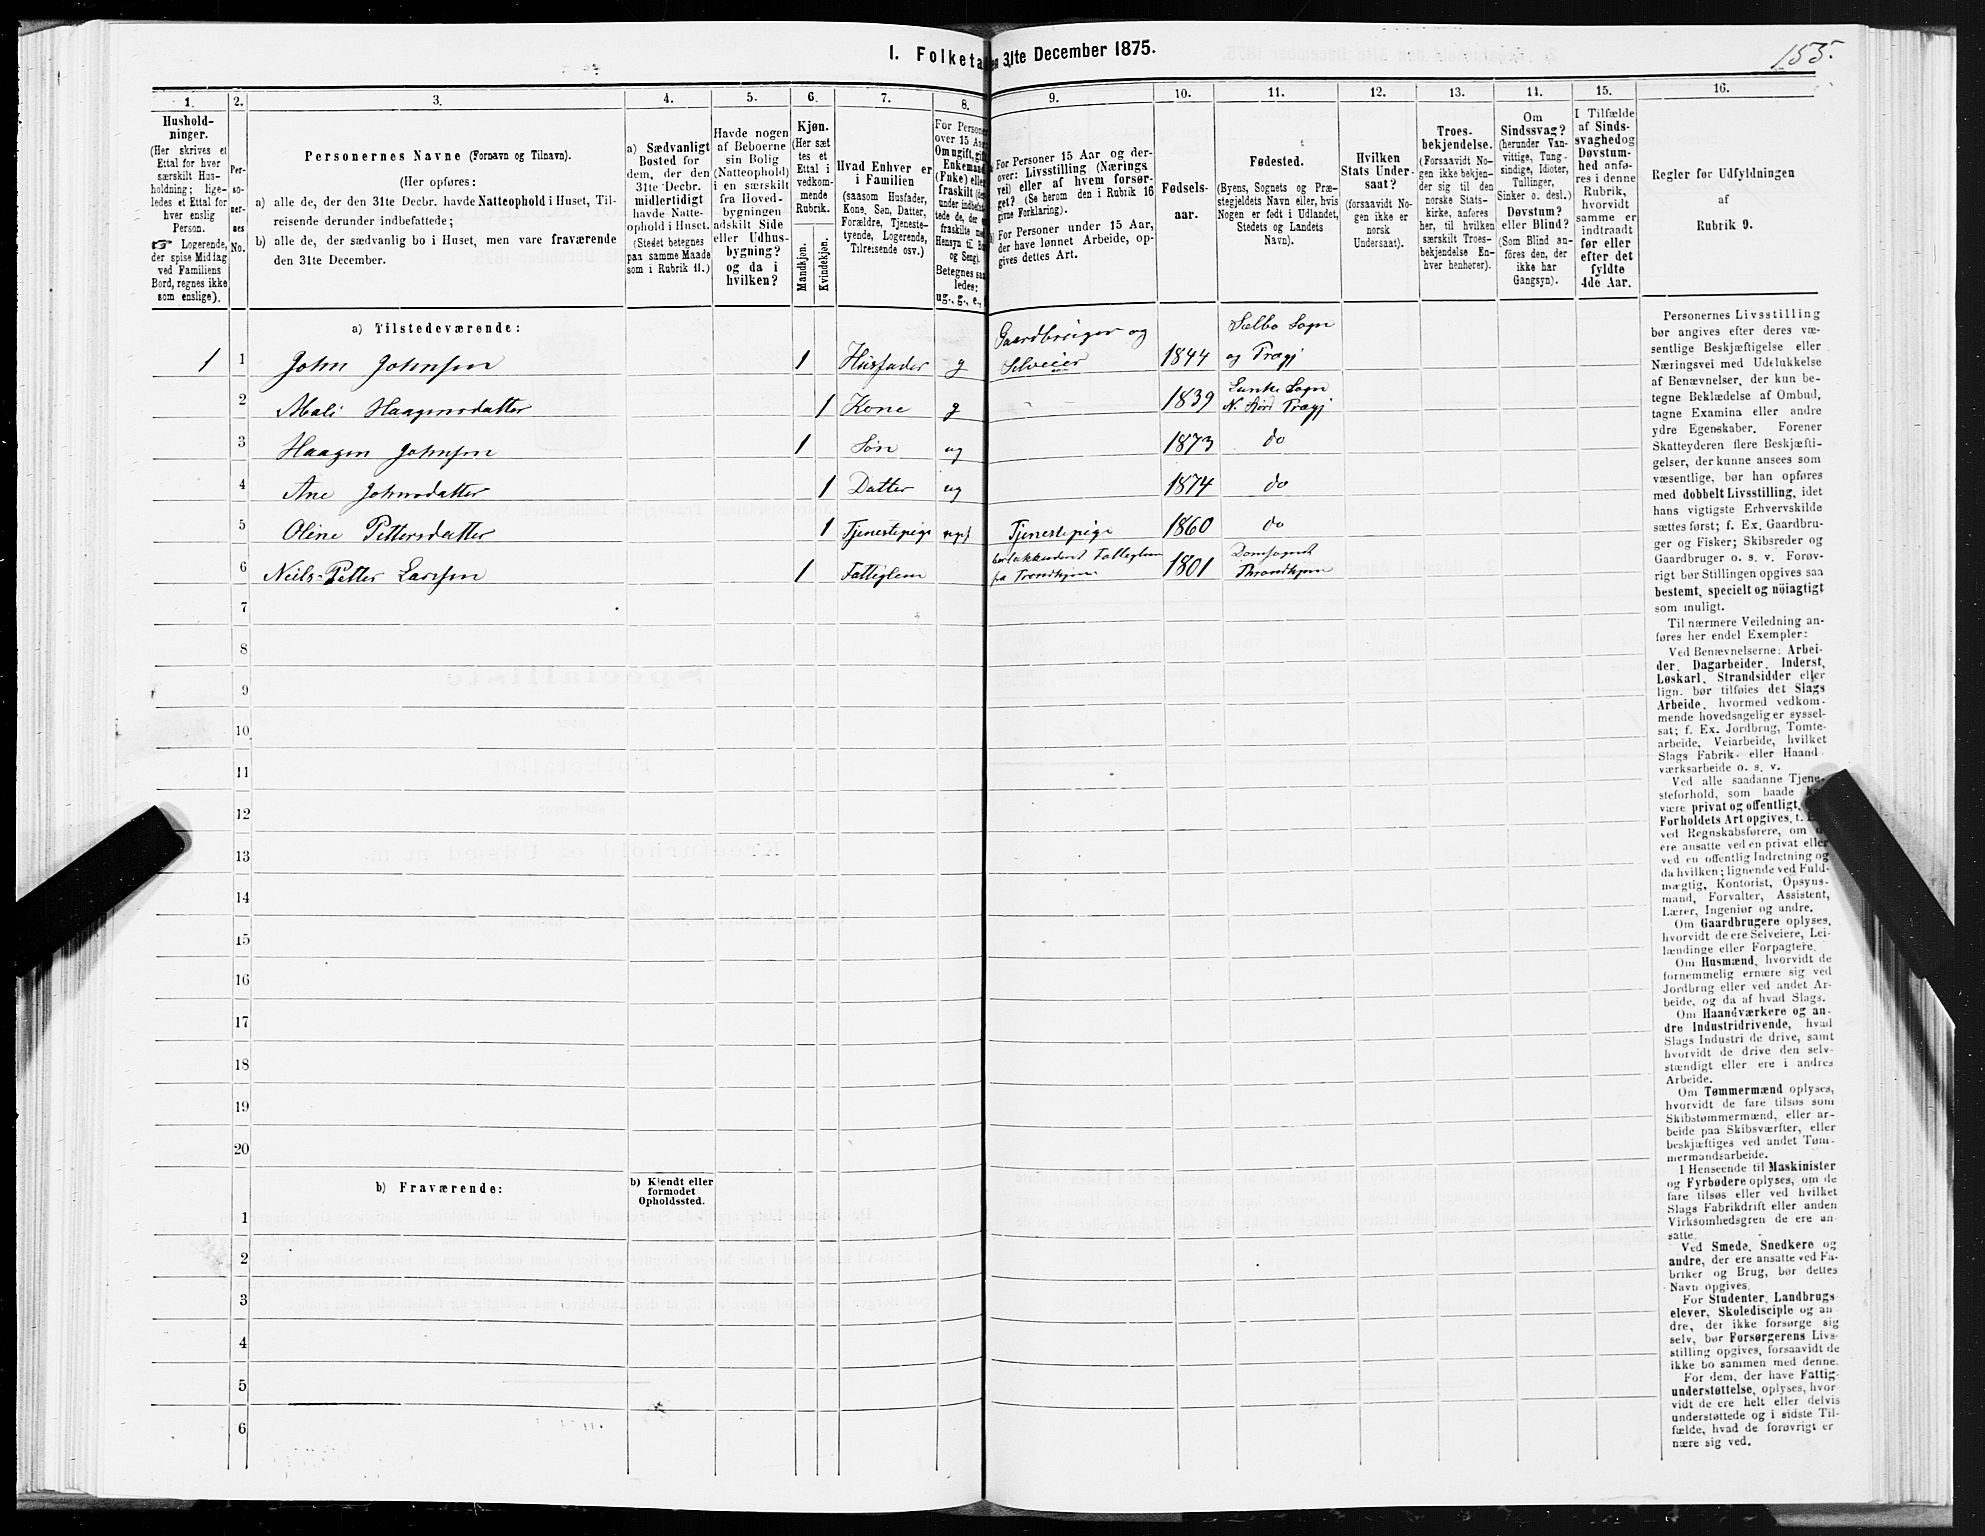 I. Folketal den 31te December 1875.
155.
1. 2. 3. 4. 5. 6. 7. 8. 9. 10. 11. 12. 13. 14. 15. 16.
Hushold-
ninger.
(Her skrives et
Ettal for hver
særskilt Hus-
holdning; lige-
ledes et Ettal for
hver enslig
Person.
☞ Logerende,
der spise Middag
ved Familiens
Bord, regnes ikke
som enslige).
Per-
so-
ner-
nes
No.
Personernes Navne (Fornavn og Tilnavn).
(Her opføres:
a) alle de, der den 31te Decbr. havde Natteophold i Huset, Til-
reisende derunder indbefattede;
b) alle de, der sædvanlig bo i Huset, men vare fraværende
den 31te December.
a) Sædvanligt
Bosted for
dem, der den
31te Decbr.
midlertidigt
havde Natte-
ophold i Huset.
(Stedet betegnes
paa samme Maade
som i Rubrik 11.)
Havde nogen
af Beboerne
sin Bolig
(Natteophold)
i en særskilt
fra Hoved-
bygningen
adskilt Side
eller Udhus-
bygning?
og da i
hvilken?
Kjøn.
(Her sæt
tes et
Ettal i
vedkom-
mende
Rubrik.
Mandkjøn.
Kvindekjøn.
Hvad Enhver er
i Familien
(saasom Husfader,
Kone, Søn, Datter,
Forældre, Tjeneste-
tyende, Logerende,
Tilreisende osv.)
For Personer
over 15 Aar:
Om ugift, gift,
Enkemand
(Enke) eller
fraskilt
Hensyn til Bord
og Seng).
Betegnes saa-
ledes:
ug., g., e.,
For Personer 15 Aar og der-
over: Livsstilling (Nærings-
vei) eller af hvem forsør-
get? (Se herom den i Rubrik 16
givne Forklaring).
For Personer under 15 Aar,
der have lønnet Arbeide, op-
gives dettes Art.
Fødsels-
aar.
Fødested.
(Byens, Sognets og Præ-
stegjeldets Navn eller, hvis
Nogen er født i Udlandet,
Stedets og Landets
Navn).
Hvilken
Stats Under-
saat?
(forsaavidt No-
gen ikke er
norsk
Undersaat).
Troes-
bekjendelse.
(Forsaavidt No-
gen ikke bekjen-
der sig til den
norske Stats-
kirke, anføres
her, til hvilken
særskilt Troes-
bekjendelse En-
hver henhører).
Om
Sindssvag?
(herunder Van-
vittige, Tung-
sindige, Idioter,
Tullinger,
Sinker o. desl.)
Døvstum?
eller Blind?
(Som Blind an-
føres den, der
ikke har
Gangsyn).
I Tilfælde
af Sinds-
svaghed og
Døvstum-
hed anfø-
res i denne
Rubrik,
hvorvidt
samme er
indtraadt
før eller
efter det
fyldte
4de Aar.
Regler for Udfyldningen
af
Rubrik 9.
a) Tilstedeværende:
1 1 John Johnsen 1 Husfader g Gaardbruger og Selveier 1844 Selbo Sogn og Prægj
2 Mali Haagensdatter 1 Kone g 1839 Sogn N. Prægj
3 Haagen Johnsen 1 Søn ug 1873 do
4 Ane Johnsdatter 1 Datter ug 1874 do
5 Oline Pettersdatter 1 Tjenestepige ug Tjenestepige 1860 do
6 Neils-Petter Larsen 1 Fattiglem Fatteglem fra Trondhjem 1801 Domsognet Throndhjem
7
8
9
10
11
12
13
14
15
16
17
18
19
20
b) Fraværende:
b) Kjendt eller
formodet
Opholdssted.
1
2
3
4
5
6
Personernes Livsstilling
bør angives efter deres væ-
sentlige Beskjæftigelse eller
Næringsvei med Udelukkelse
af Benævnelser, der kun be-
tegne Beklædelse af Ombud,
tagne Examina eller andre
ydre Egenskaber. Forener
Skatteyderen flere Beskjæfti-
gelser, der kunne ansees som
væsentlige, bør han opføres
med dobbelt Livsstilling, idet
hans vigtigste Erhvervskilde
sættes først; f. Ex. Gaardbru-
ger og Fisker; Skibsreder og
Gaardbruger o. s. v. Forøv-
rigt bør Stillingen opgives saa
bestemt, specielt og nöiagtigt
som muligt.
Til nærmere Veiledning an-
føres her endel Exempler:
Ved Benævnelserne: Arbei-
der, Dagarbeider, Inderst,
Løskarl, Strandsidder eller
lign. bør tilføies det Slags
Arbeide, hvormed vedkom-
mende hovedsagelig er syssel-
sat; f. Ex. Jordbrug, Tomte-
arbeide, Veiarbeide, hvilket
Slags Fabrik- eller Haand-
værksarbeide o. s. v.
Ved alle saadanne Tjene-
steforhold, som baade
være privat og offentligt,
Forholdets Art opgives,
ved Regnskabsførere, om
ere ansatte ved en privat eller
ved en offentlig Indretning og
da hvilken; lignende ved Fuld-
mægtig, Kontorist, Opsyns-
mand, Forvalter, Assistent,
Lærer, Ingeniør og andre.
Om Gaardbrugere oplyses,
hvorvidt de ere Selveiere, Lei-
lændinge eller Forpagtere.
Om Husmænd, hvorvidt de
fornemmelig ernære sig ved
Jordbrug eller ved andet Ar-
beide, og da af hvad Slags.
Om Haandværkere og an-
dre Industridrivende, hvad
Slags Industri de drive, samt
hvorvidt de drive den selv-
stændigt eller ere i andres
Arbeide.
Om Tømmermænd oplyses,
hvorvidt de fare tilsøs som
Skibstømmermænd, eller ar-
beide paa Skibsværfter, eller
beskjæftiges ved andet Tøm-
mermandsarbeide.
I Henseende til Maskinister
og Fyrbødere oplyses, om de
fare tilsøs eller ved hvilket
Slags Fabrikdrift eller anden
Virksomhedsgren de ere an-
satte.
Ved Smede, Snedkere og
andre, der ere ansatte ved Fa-
briker og Brug, bør dettes
Navn opgives.
For Studenter, Landbrugs-
elever, Skoledisciple og an-
dre, der ikke forsørge sig
selv, bør Forsørgerens Livs-
stilling opgives, forsaavidt de
ikke bo sammen med denne.
For dem, der have Fattig-
understøttelse, oplyses, hvor-
vidt de ere helt eller delvis
understøttede og i sidste Til-
fælde, hvad de forøvrigt er-
nære sig ved.